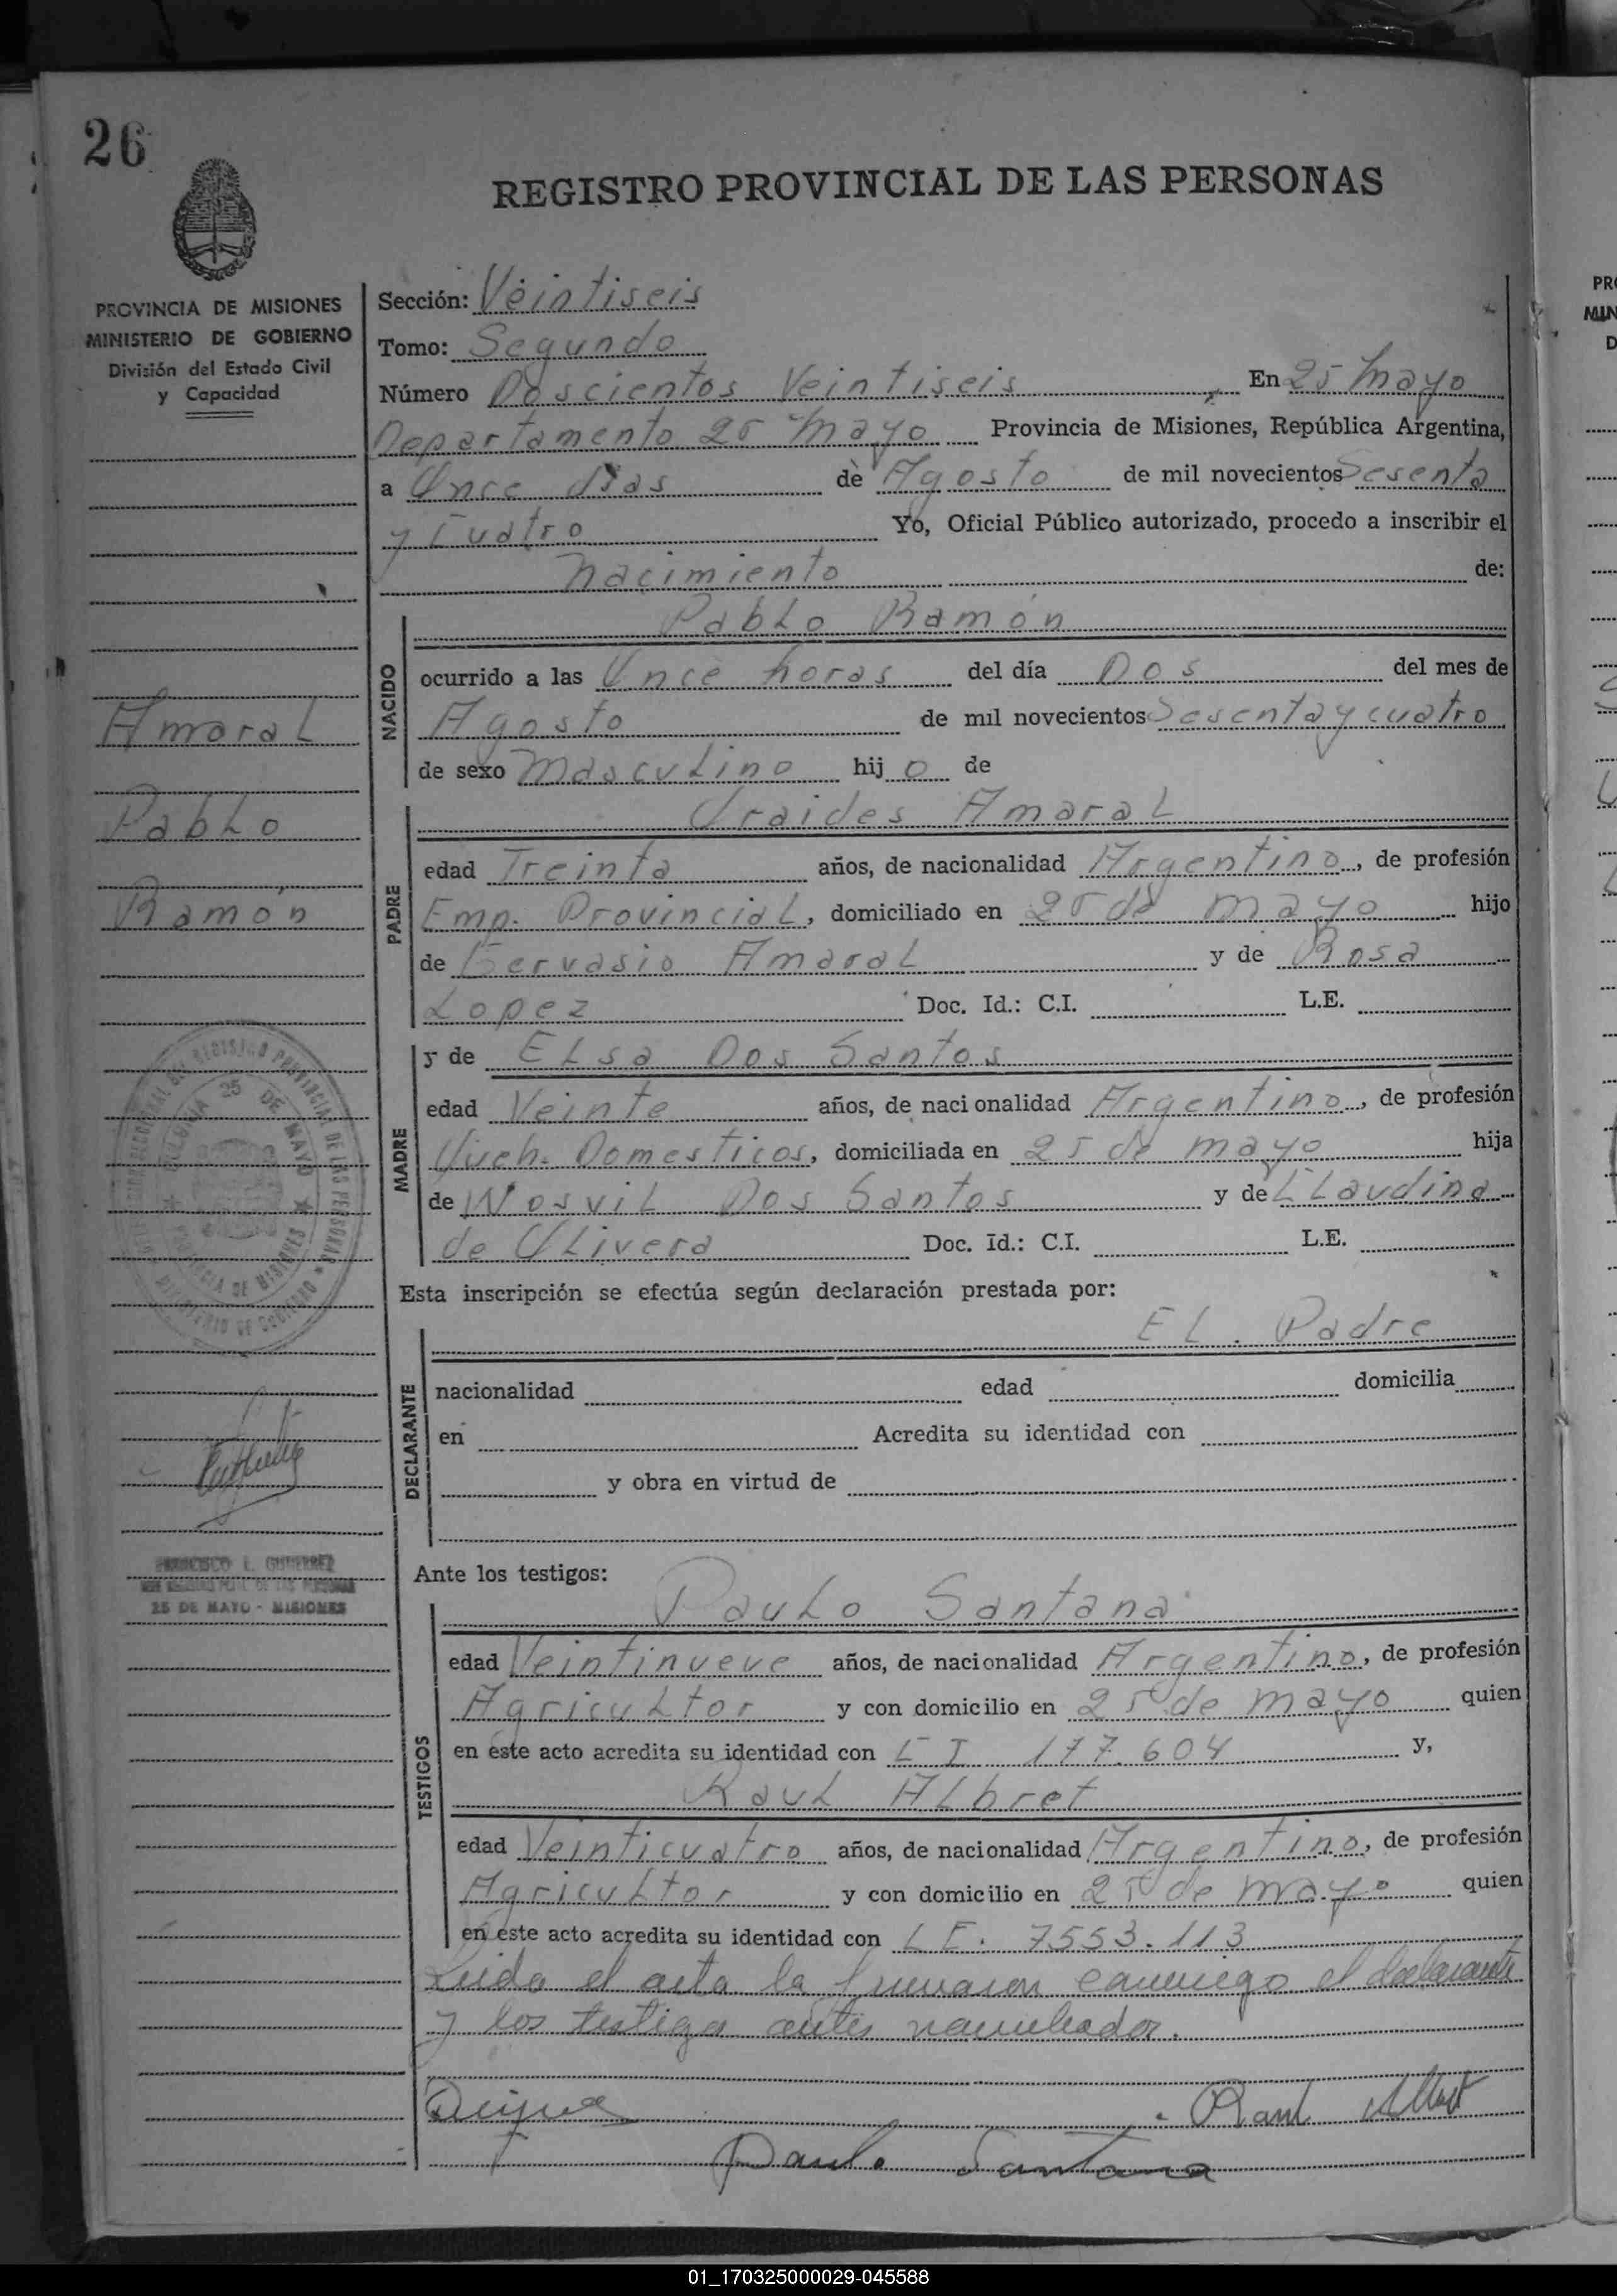 26
REGISTRO PROVINCIAL DE LAS PERSONAS
PROVINCIA DE MISIONES
MINISTERIO DE GOBIERNO
División del Estado Civil
y Capacidad
Sección: Veintiseis
Tomo: Segundo
Número Doscientos Veintiseis, En 25 Mayo
Departamento 25 Mayo Provincia de Misiones, República Argentina,
a Once dias de Agosto de mil novecientos Sesenta
y Cuatro Yo, Oficial Público autorizado, procedo a inscribir el
nacimiento de:
Pablo Ramón
NACIDO
ocurrido a las Once horas del día Dos del mes de
Agosto de mil novecientos Sesenta y cuatro
de sexo Masculino hijo de
Amaral
Pablo
Ramón
PADRE
Oraides Amaral
edad Treinta años, de nacionalidad Argentino, de profesión
Emp. Provincial, domiciliado en 25 de mayo hijo
de Gervasio Amaral y de Rosa
Lopez Doc. Id.: C.I. L.E.
MADRE
y de Elsa Dos Santos
edad Veinte años, de nacionalidad Argentino, de profesión
Domesticos, domiciliada en 25 de mayo hija
de Dos Santos y de Claudina
de Olivera Doc. Id.: C.I. L.E.
Esta inscripción se efectúa según declaración prestada por:
El. Padre
DECLARANTE
nacionalidad edad domicilia
en Acredita su identidad con
y obra en virtud de
FRANCISCO L. GUTIERREZ
25 DE MAYO - MISIONES
Ante los testigos:
TESTIGOS
Paulo Santana
edad Veintinueve años, de nacionalidad Argentino, de profesión
Agricultor y con domicilio en 25 de mayo quien
en este acto acredita su identidad con C I 177.604 y,
Raul Albret
edad Veinticuatro años, de nacionalidad Argentino, de profesión
Agricultor y con domicilio en 25 de mayo quien
en este acto acredita su identidad con L E. 7553.113
Leida el acta la firmaron conmigo el declarante
y los testigos antes nombrados.
Raul Albret
Paulo Santana
01_170325000029-045588